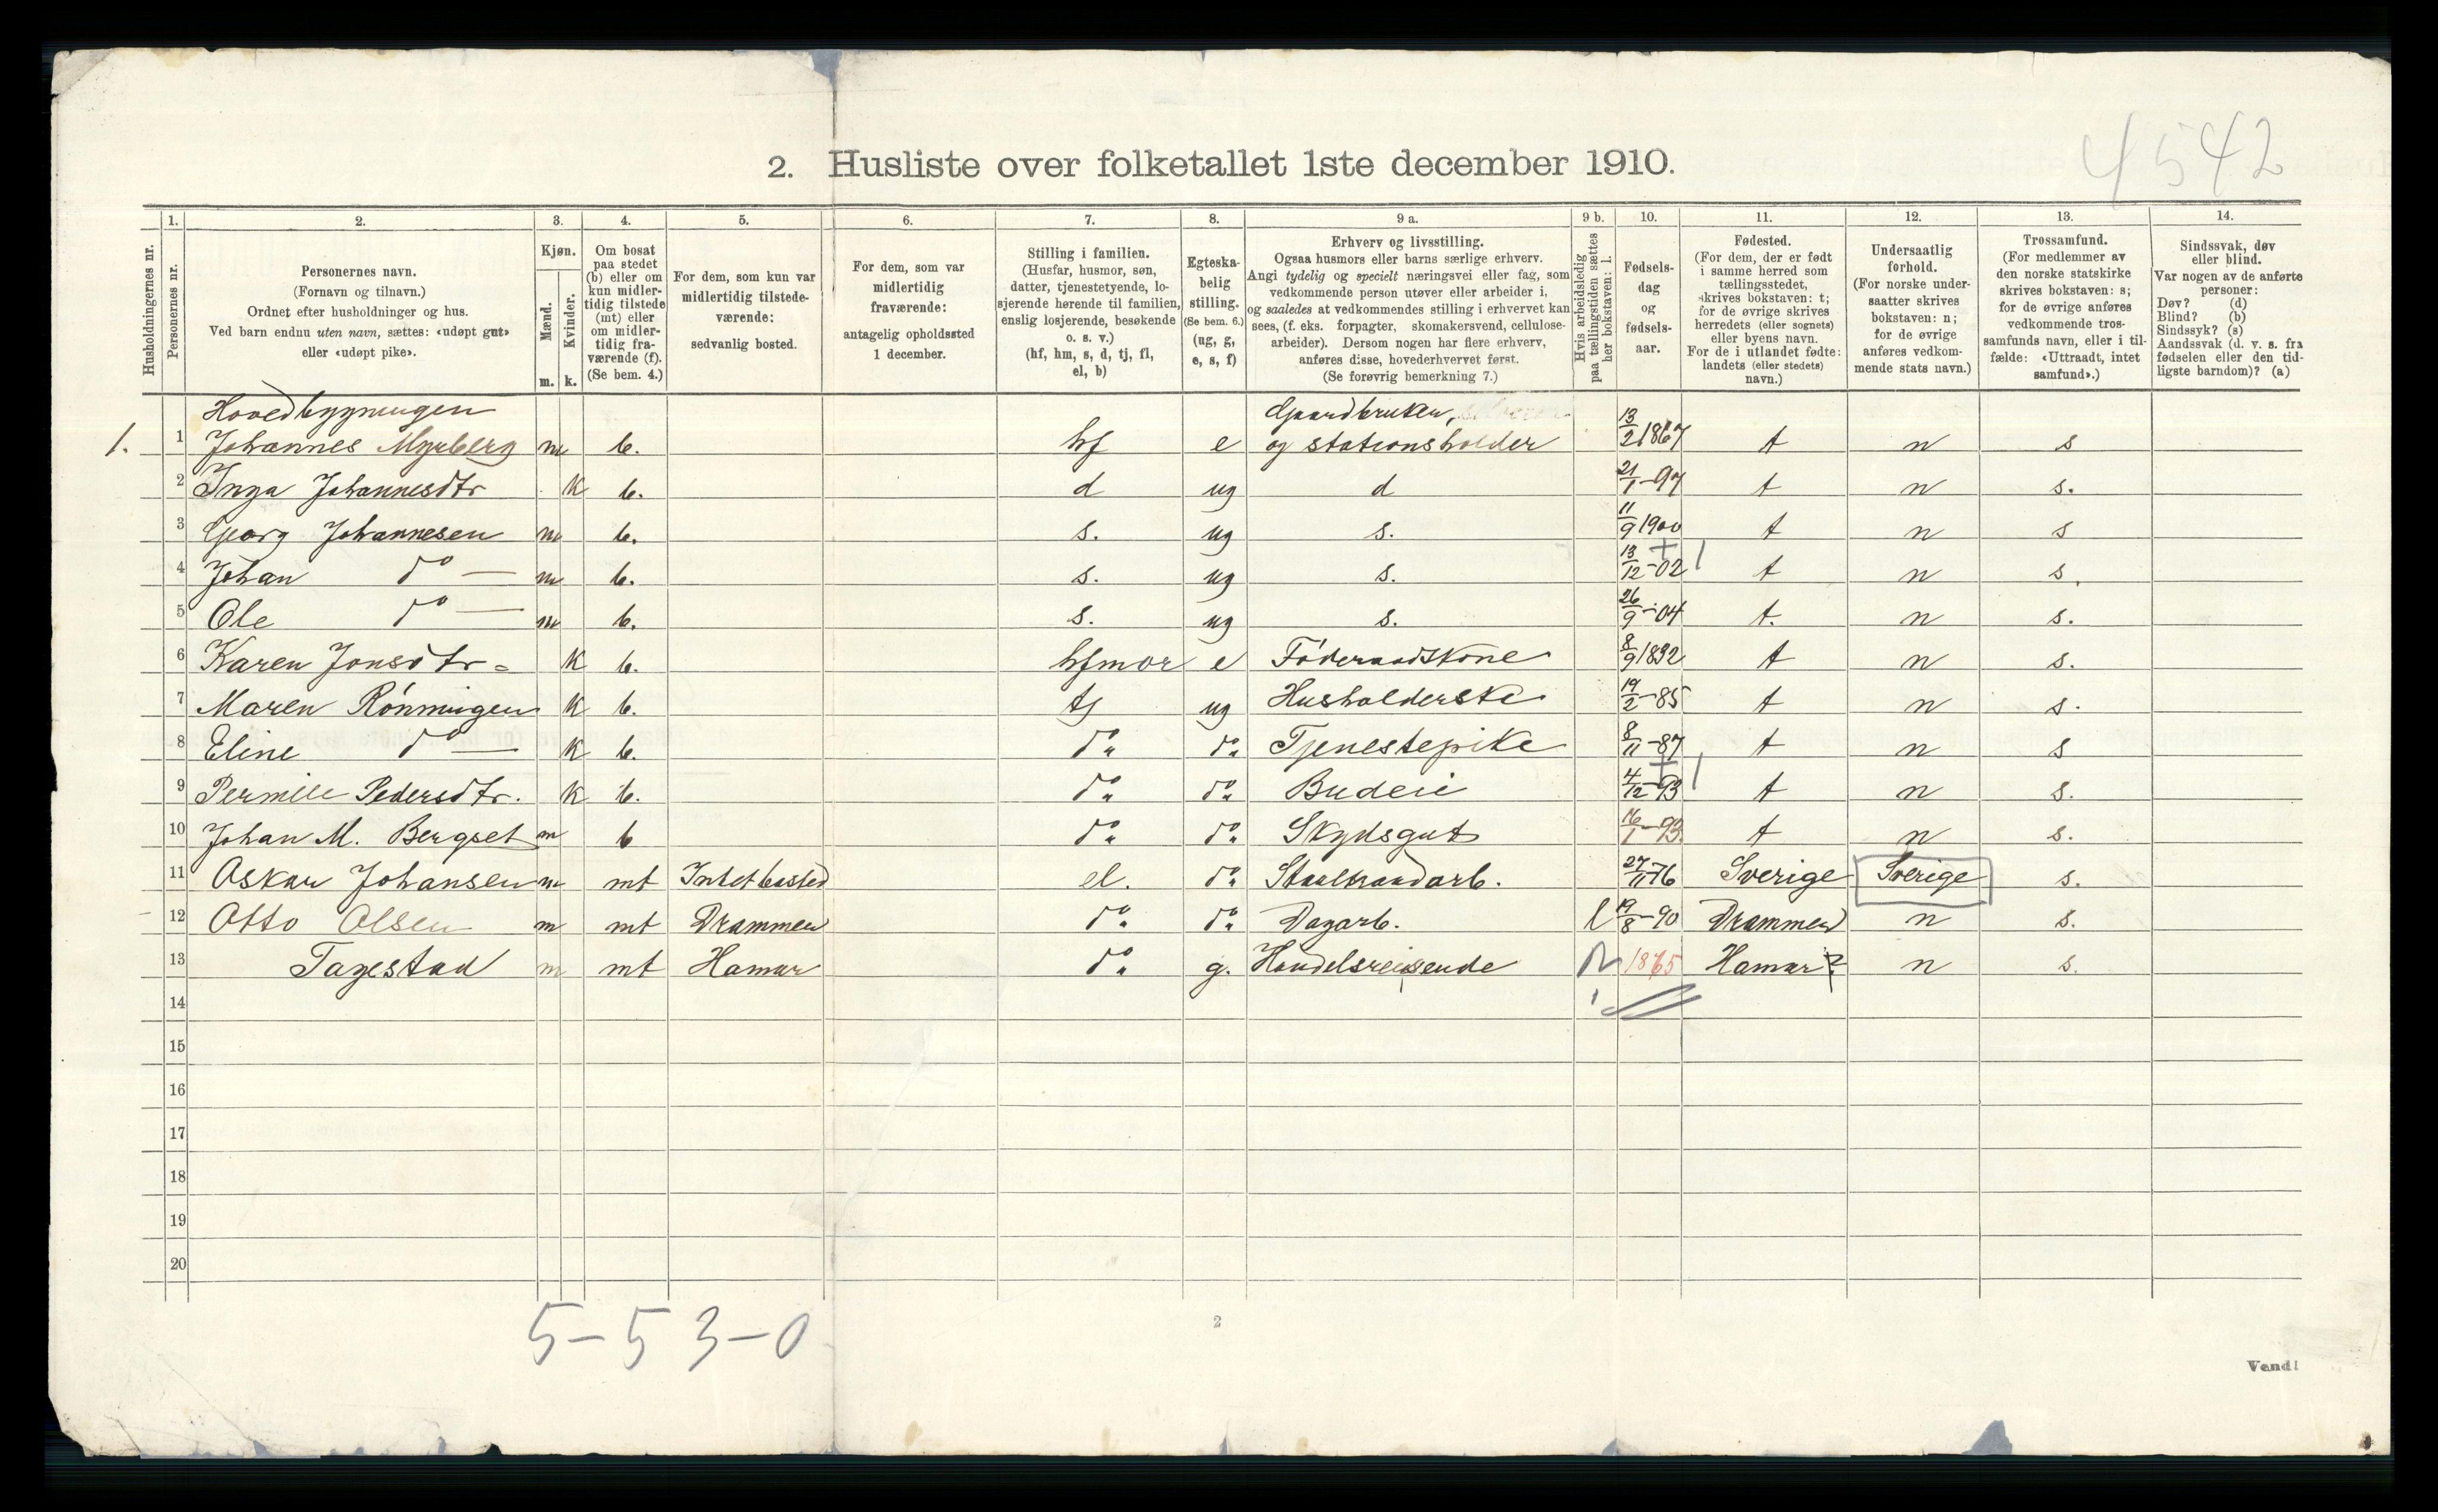 4542
2. Husliste over folketallet 1ste december 1910.
1. 2. 3. 4. 5. 6. 7. 8. 9 a. 9 b. 10. 11. 12. 13. 14.
Husholdningernes nr.
Personernes nr.
Personernes navn.
(Fornavn og tilnavn.)
Ordnet efter husholdninger og hus.
Ved barn endnu uten navn, sættes: «udøpt gut»
eller «udøpt pike».
Kjøn.
Mænd.
Kvinder.
m. k.
Om bosat
paa stedet
(b) eller om
kun midler-
tidig tilstede
(mt) eller
om midler-
tidig fra-
værende (f).
(Se bem. 4.)
For dem, som kun var
midlertidig tilstede-
værende:
sedvanlig bosted.
For dem, som var
midlertidig
fraværende:
antagelig opholdssted
1 december.
Stilling i familien.
(Husfar, husmor, søn,
datter, tjenestetyende, lo-
sjerende hørende til familien,
enslig losjerende, besøkende
o. s. v.)
(hf, hm, s, d, tj, fl,
el, b)
Egteska-
belig
stilling.
(Se bem. 6.)
(ug, g,
e, s, f)
Erhverv og livsstilling.
Ogsaa husmors eller barns særlige erhverv.
Angi tydelig og specielt næringsvei eller fag, som
vedkommende person utøver eller arbeider i,
og saaledes at vedkommendes stilling i erhvervet kan
sees, (f. eks. forpagter, skomakersvend, cellulose-
arbeider). Dersom nogen har flere erhverv,
anføres disse, hovederhvervet først.
(Se forøvrig bemerkning 7.)
Hvis arbeidsledig
paa tællingstiden sættes
her bokstaven: l.
Fødsels-
dag
og
fødsels-
aar.
Fødested.
(For dem, der er født
i samme herred som
tællingsstedet,
skrives bokstaven: t;
for de øvrige skrives
herredets (eller sognets)
eller byens navn.
For de i utlandet fødte:
landets (eller stedets)
navn.)
Undersaatlig
forhold.
(For norske under-
saatter skrives
bokstaven: n;
for de øvrige
anføres vedkom-
mende stats navn.)
Trossamfund.
(For medlemmer av
den norske statskirke
skrives bokstaven: s;
for de øvrige anføres
vedkommende tros-
samfunds navn, eller i til-
fælde: «Uttraadt, intet
samfund».)
Sindssvak, døv
eller blind.
Var nogen av de anførte
personer:
Døv? (d)
Blind? (b)
Sindssyk? (s)
Aandssvak (d. v. s. fra
fødselen eller den tid-
ligste barndom)? (a)
Hovedbygningen Gaardbruker,
1. 1 Johannes Myrberg m b. hf e og stationsholder 13/2 1867 t n s
2 Inga Johannesdtr k b. d ug d 21/1-97 t n s.
3 Georg Johannesen m b. s. ug s. 11/9 1900 t n s
4 Johan do — m b. s. ug s. 13/12-02 t n s.
5 Ole do — m b. s. ug s. 26/9-04 t. n s.
6 Karen Jonsdtr k b. hfmor e Föderaadskone 8/9 1832 t n s.
7 Maren Rönningen k b. tj ug Husholderske 19/2-85 t n s.
8 Eline do — k b. do do Tjenestepike 8/11-87 t n s
9 Pernille Pedersdtr. k b. do do Budeie 4/12-93 t n s.
10 Johan M. Bergset m b do do Skydsgut 16/1-93 t n s.
11 Oskar Johansen m mt Intet bosted el. do 27/11-76 Sverige Sverige s.
12 Otto Olsen m mt Drammen do do Dagarb. l 19/8-90 Drammen n s.
13 Tagestad m mt Hamar do g. Handelsreisende 1865 Hamar? n s.
14
15
16
17
18
19
20
5-5 3-0
2
Vend!